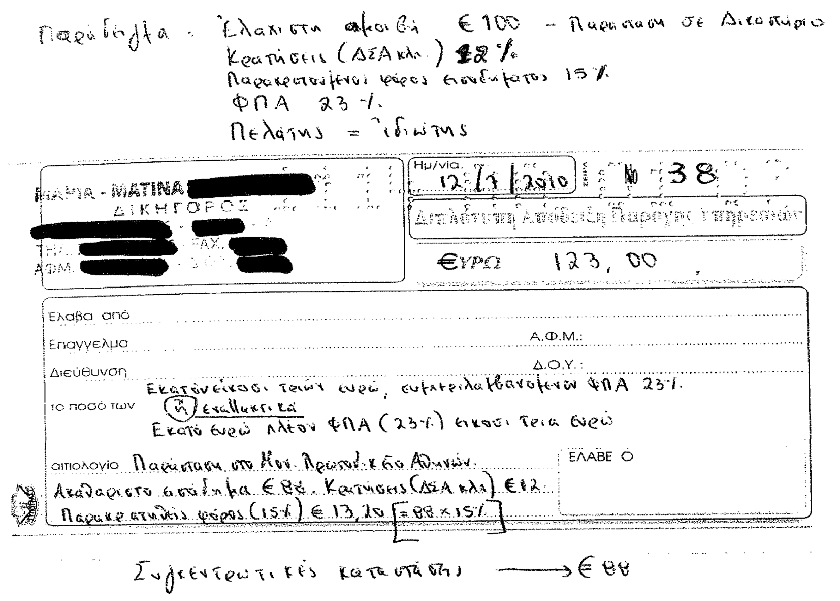 Παράδειγμα - Ελάχιστη αμοιβή € 100 - Παράσταση σε Δικαστήριο
Κρατήσεις (ΔΣΑ κλπ.) 12%
Παρακρατούμενος φόρος εισοδήματος 15%
ΦΠΑ 23%
Πελάτης = ιδιώτης
ΜΑΡΙΑ - ΜΑΤΙΝΑ
ΔΙΚΗΓΟΡΟΣ
ΤΗΛ. FAX.
ΑΦΜ.
Ημ/νία 12/7/2010 38
Διπλότυπη Απόδειξη Παροχής Υπηρεσιών
€ΥΡΩ 123,00
Ελαβα από
Επαγγελμα Α.Φ.Μ.:
Διεύθυνση Δ.Ο.Υ.:
Εκατόν είκοσι τριών ευρώ, συμπεριλαμβανομένου ΦΠΑ 23%.
το ποσό των ή εναλλακτικά
Εκατό ευρώ πλέον ΦΠΑ (23%) είκοσι τρια ευρώ
αιτιολογία Παράσταση στο Μον. Πρωτοδικείο Αθηνών.
Ακαθάριστο εισόδημα € 88. Κρατήσεις (ΔΣΑ κλπ) € 12.
Παρακρατηθείς φόρος (15%) € 13,20 [= 88 x 15%]
ΕΛΑΒΕ Ο
Συγκεντρωτικές καταστάσεις → € 88